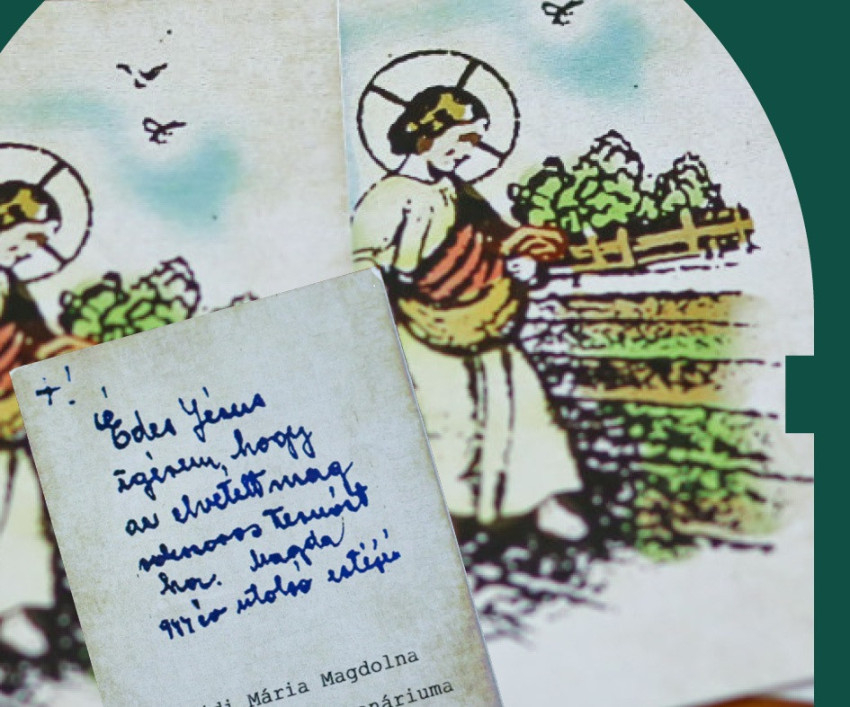 +!
Édes Jézus
igérem, hogy
az elvetett mag
sokszoros termést
hoz. Magda
944 év utolsó estéjén
di Mária Magdolna
náriuma